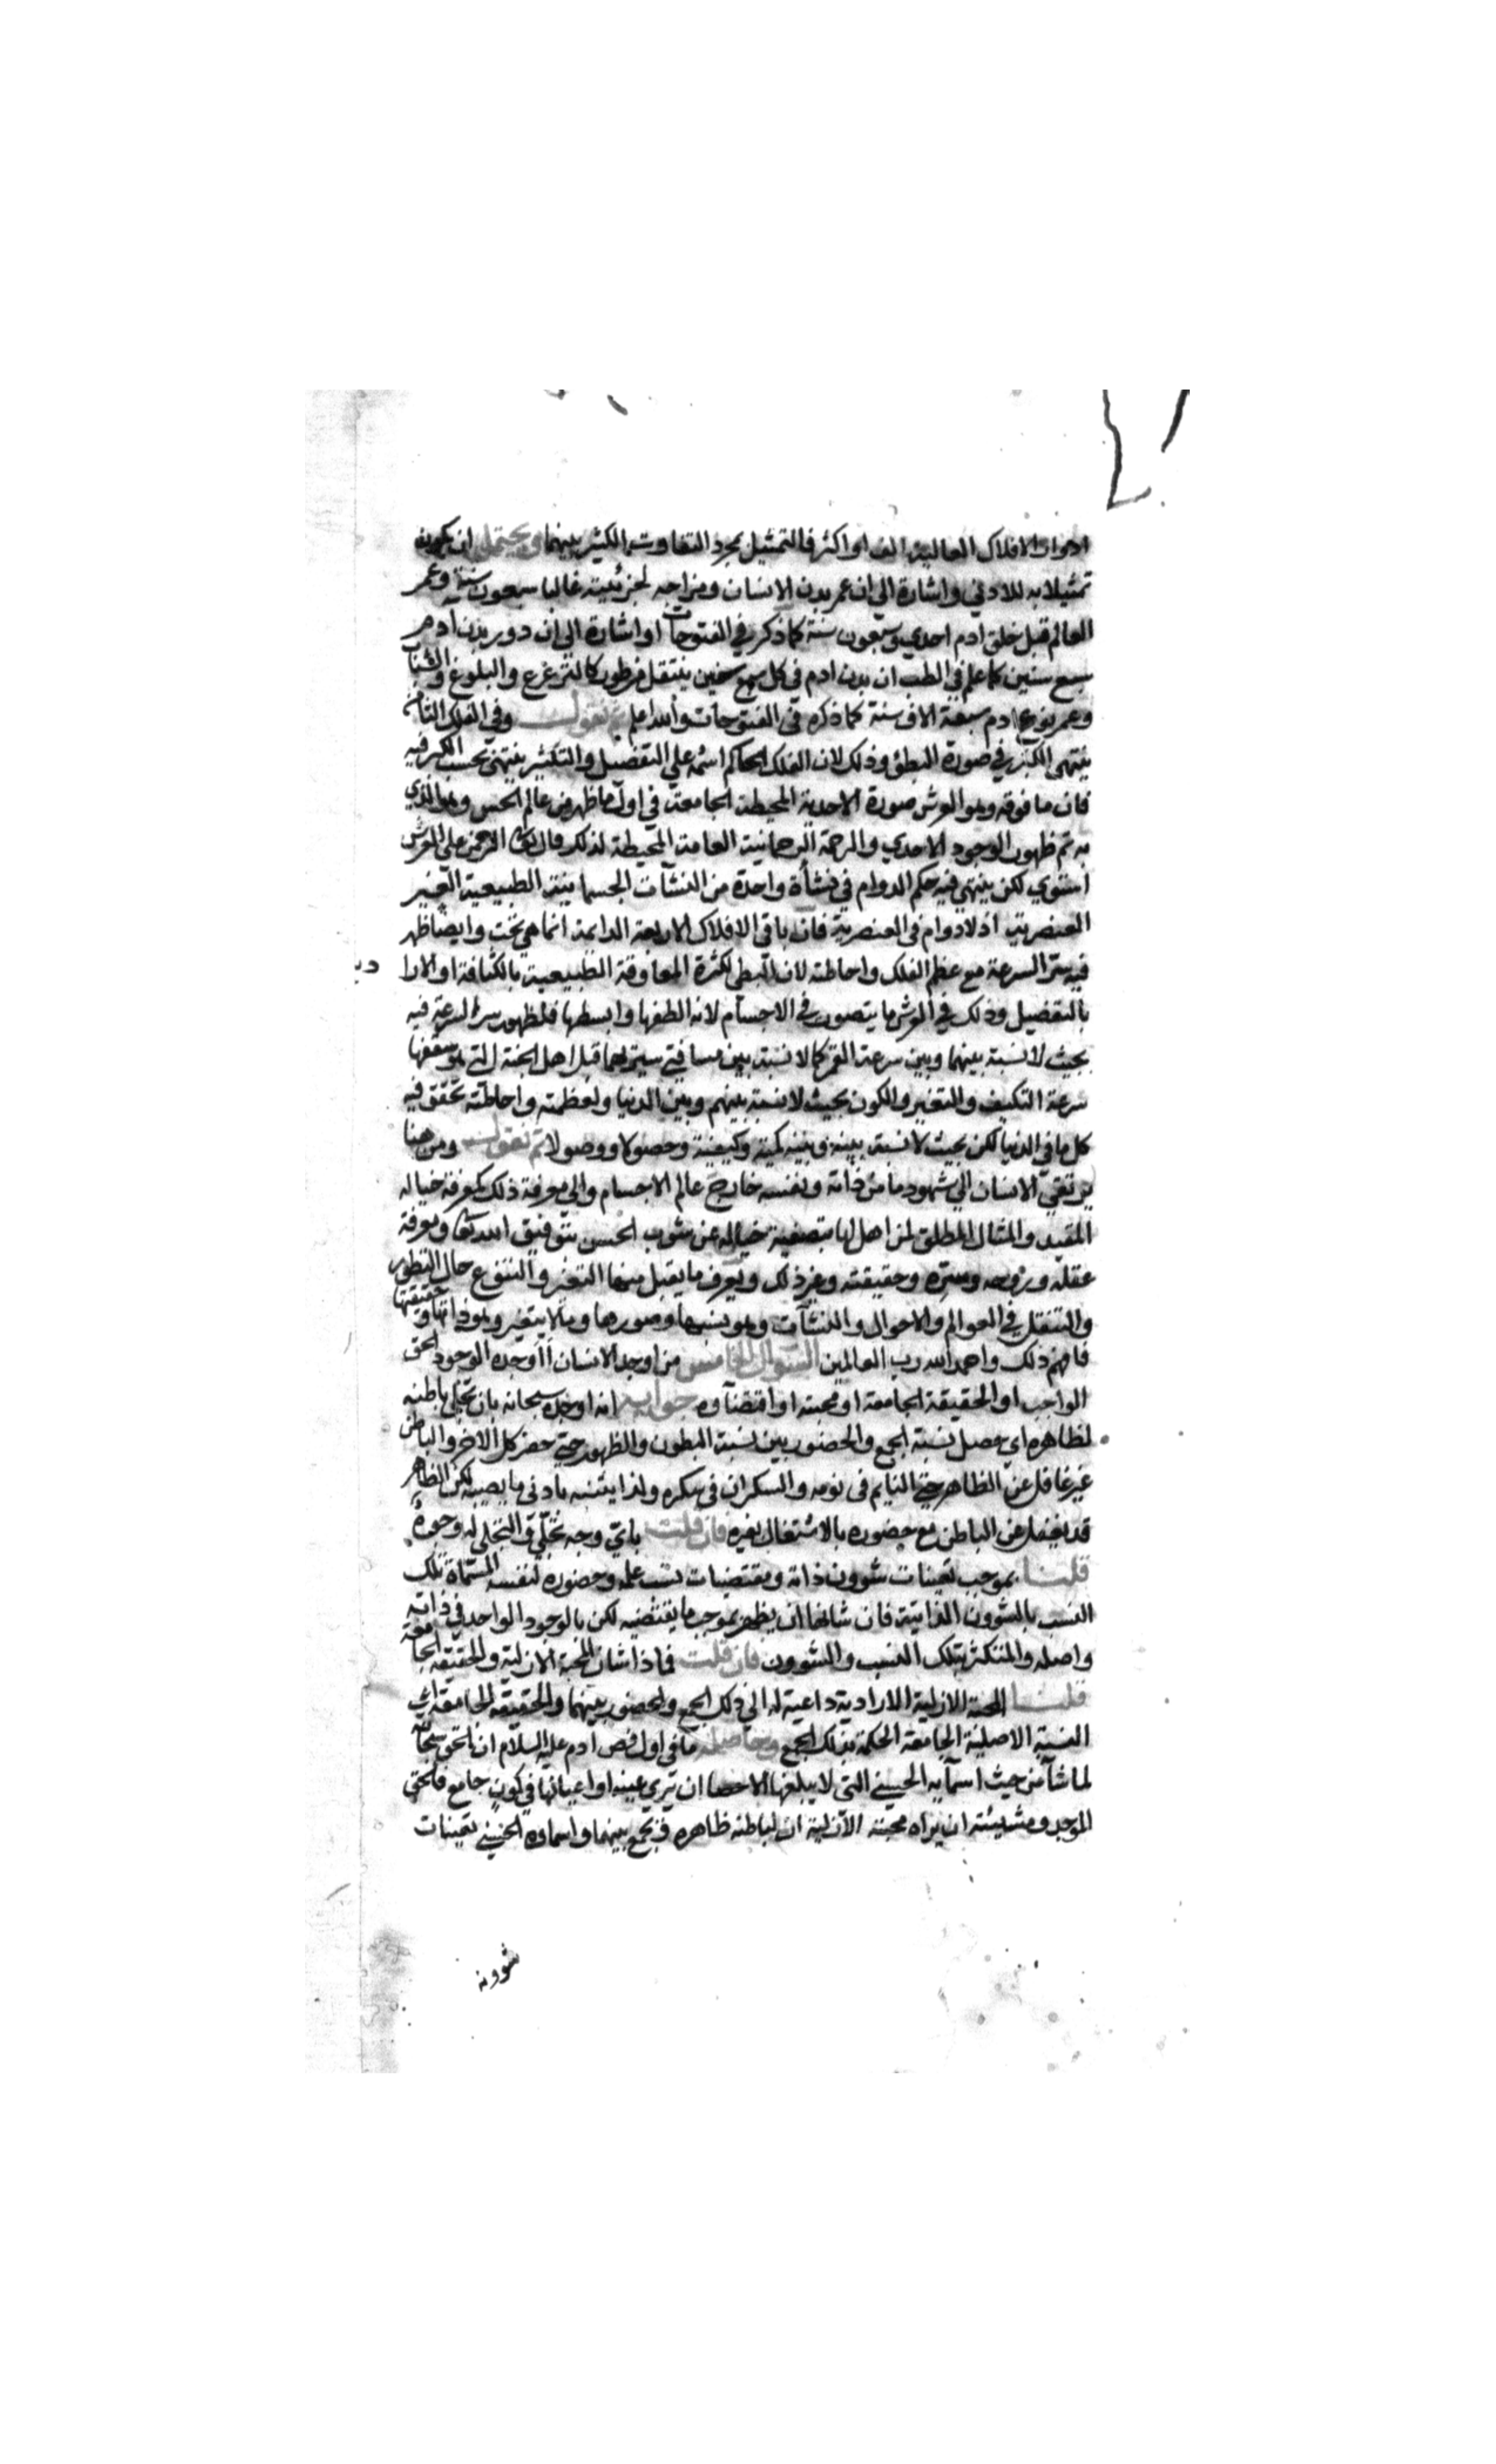 ادوار الافلاك العالية الف او اكثر فالتمثيل بمجرد التفاوت الكثير بينهما ويحتمل ان يكون
تمثيلا به للادني واشارة الي ان عمر بدن الانسان ومزاجه لجزئيته غالبا سبعون سنة وعمر
العالم قبل خلق ادم احدي وسبعون سنة كما ذكر في الفتوحات او اشارة الي ان دور بدن ادم
سبع سنين كما علم في الطب ان بدن ادم في كل سبع سنين ينتقل من طور كالترعرع والبلوغ والشباب
وعمر نوع ادم سبعة الاف سنة كما ذكره في الفتوحات والله اعلم ثم نقول وفي الفلك الثامن
ينتهي الكثير في صورة البطؤ وذلك لان الفلك الحاكم اسمه علي التفصيل والتكثير ينتهي بحسب الكثر فيه
فان ما فوقه وهو العرش صورة الاحدية المحيطة الجامعة في اول ما ظهر من عالم الحس وهو الذي
به تم ظهور الوجود الاحدي والرحمة الرحمانية العامة المحيطة لذلك قال تعالي الرحمن علي العرش
استوي لكن ينتهي فيه حكم الدوام في نشأة واحدة من النشآت الجسمانية الطبيعية الغير
العنصرية اذ لا دوام في العنصرية فان باقي الافلاك الاربعة الدائمة انما هي تحت وايضا ظهر
فيه سر السرعة مع عظم الفلك واحاطته لان البطي لكثرة المعاوقة الطبيعية بالكثافة او الارا
دية
بالتفصيل وذلك في العرش ما يتصور في الاجسام لانه الطفها وابسطها فلظهور سر السرعة فيه
بحيث لا نسبة بينهما وبين سرعة القمر كما لا نسبة بين مسافتي سيريهما قبل اهل الجنة التي هو سقفها
سرعة التكيف والتغير والكون بحيث لا نسبة بينهم وبين الدنيا ولعظمته واحاطته تحقق فيه
كل ما في الدنيا لكن بحيث لا نسبة بينه وبينه كمية وكيفية وحصولا ووصولا ثم نقول ومن هنا
يرتقي الانسان الي شهود ما من ذاته ونفسه خارج عالم الاجسام والي معرفة ذلك كمعرفة خياله
المقيد والمثال المطلق لمن اهل لها بتصفية خياله عن شوب الحس بتوفيق الله تعا ومعرفة
عقله وروحه وسره وحقيقته وغير ذلك ويعرف ما يقبل منها التغير والتنوع حال التطور
والتنقل في العوالم والاحوال والنشآت وهو نسبها وصورها وما لا يتغير وهو ذاتها وحقيقتها
فافهم ذلك واحمد الله رب العالمين السؤال الخامس من اوجد الانسان أاوجده الوجود الحق
الواجب او الحقيقة الجامعة او محبته او اقتضآوه جوابه انه اوجده سبحانه بان تجلي باطنه
لظاهره اي حصل نسبة الجمع والحضور بين نسبة البطون والظهور حتي حضر كل الاخر والباطن
غير غافل عن الظاهر حتي النايم في نومه والسكران في سكره ولذا يتنبه بادني ما يصيبه لكن الظاهر
قد يغفل عن الباطن مع حضوره بالاشتغال بغيره فان قلت باي وجه تجلي في التجلي له وجوده
قلنا بموجب تعينات شوون ذاته ومقتضيات نسب علمه وحضوره لنفسه المسماة تلك
النسب بالشوون الذاتية فان شانها ان يظهر بموجب ما يقتضيه لكن بالوجود الواحد في ذاته
واصله والمتكثر بتلك النسب والشوون فان قلت فماذا شان المحبة الازلية والحقيقة الجامعة
قلنا المحبة الازلية الارادية داعية له الي ذلك الجمع والحضور بينهما والحقيقة الجامعة هي
النسبة الاصلية الجامعة الحكمة بذلك الجمع وحاصله ما في اول فص ادم عليه السلام ان الحق سبحانه
لما شآ من حيث اسمآيه الحسني التي لا يبلغها الاحصا ان يري عينه او اعيانها في كون جامع فالحق
الموجد ومشيئته ان يراه محبته الازلية ان لباطنه ظاهره فيجمع بينهما واسماوه الحسني تعينات
شوونه